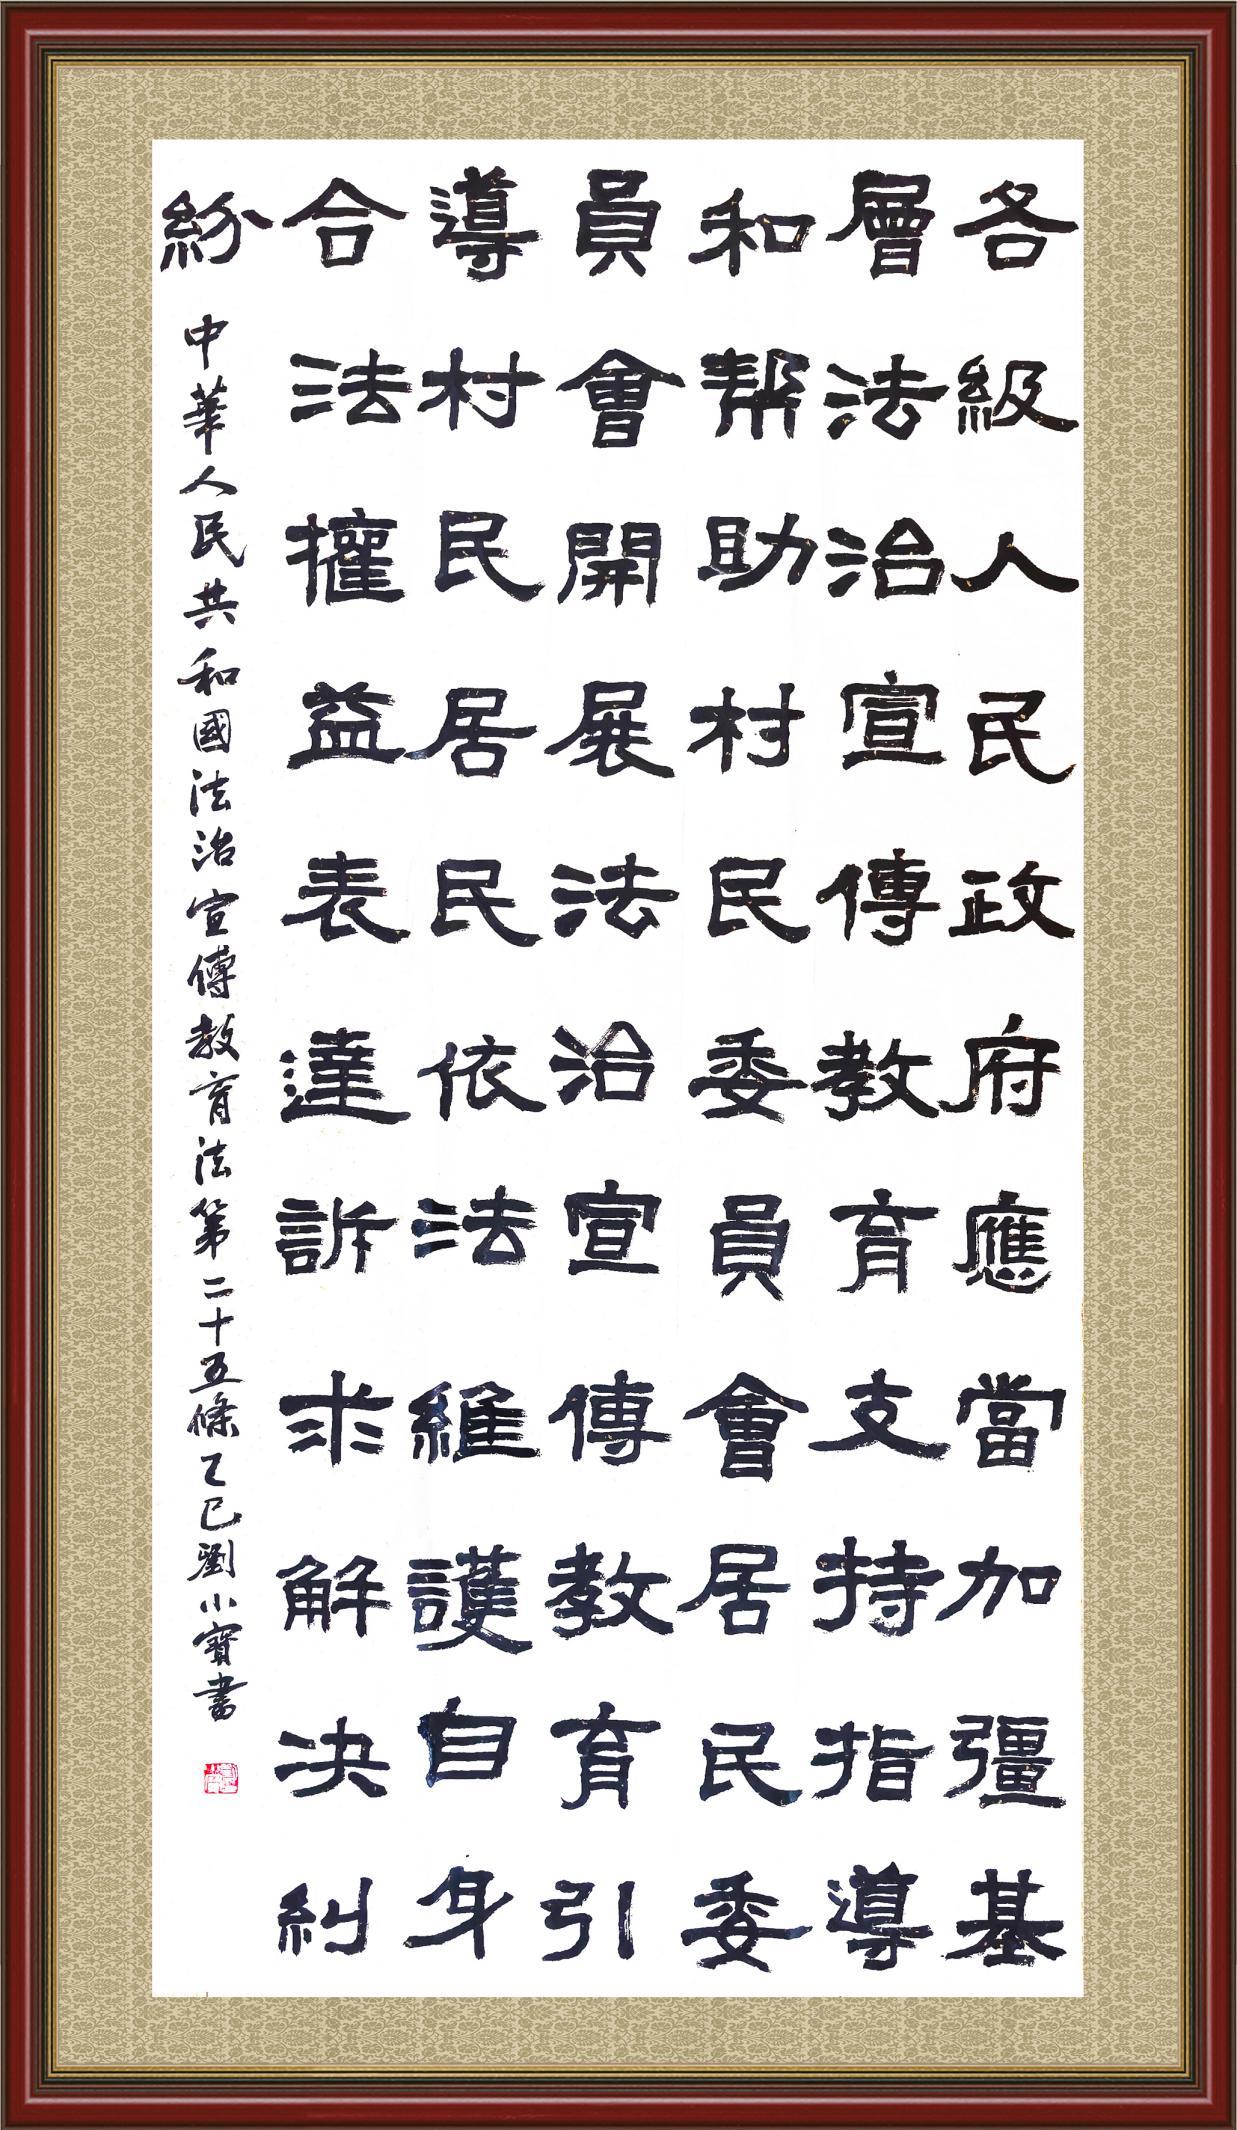 各級人民政府應當加彊基
層法治宣傳教育支持指導
和帮助村民委員會居民委
員會開展法治宣傳教育引
導村民居民依法維護自身
合法權益表達訴求解決糾
紛
中華人民共和國法治宣傳教育法第二十五條乙巳劉小寶書